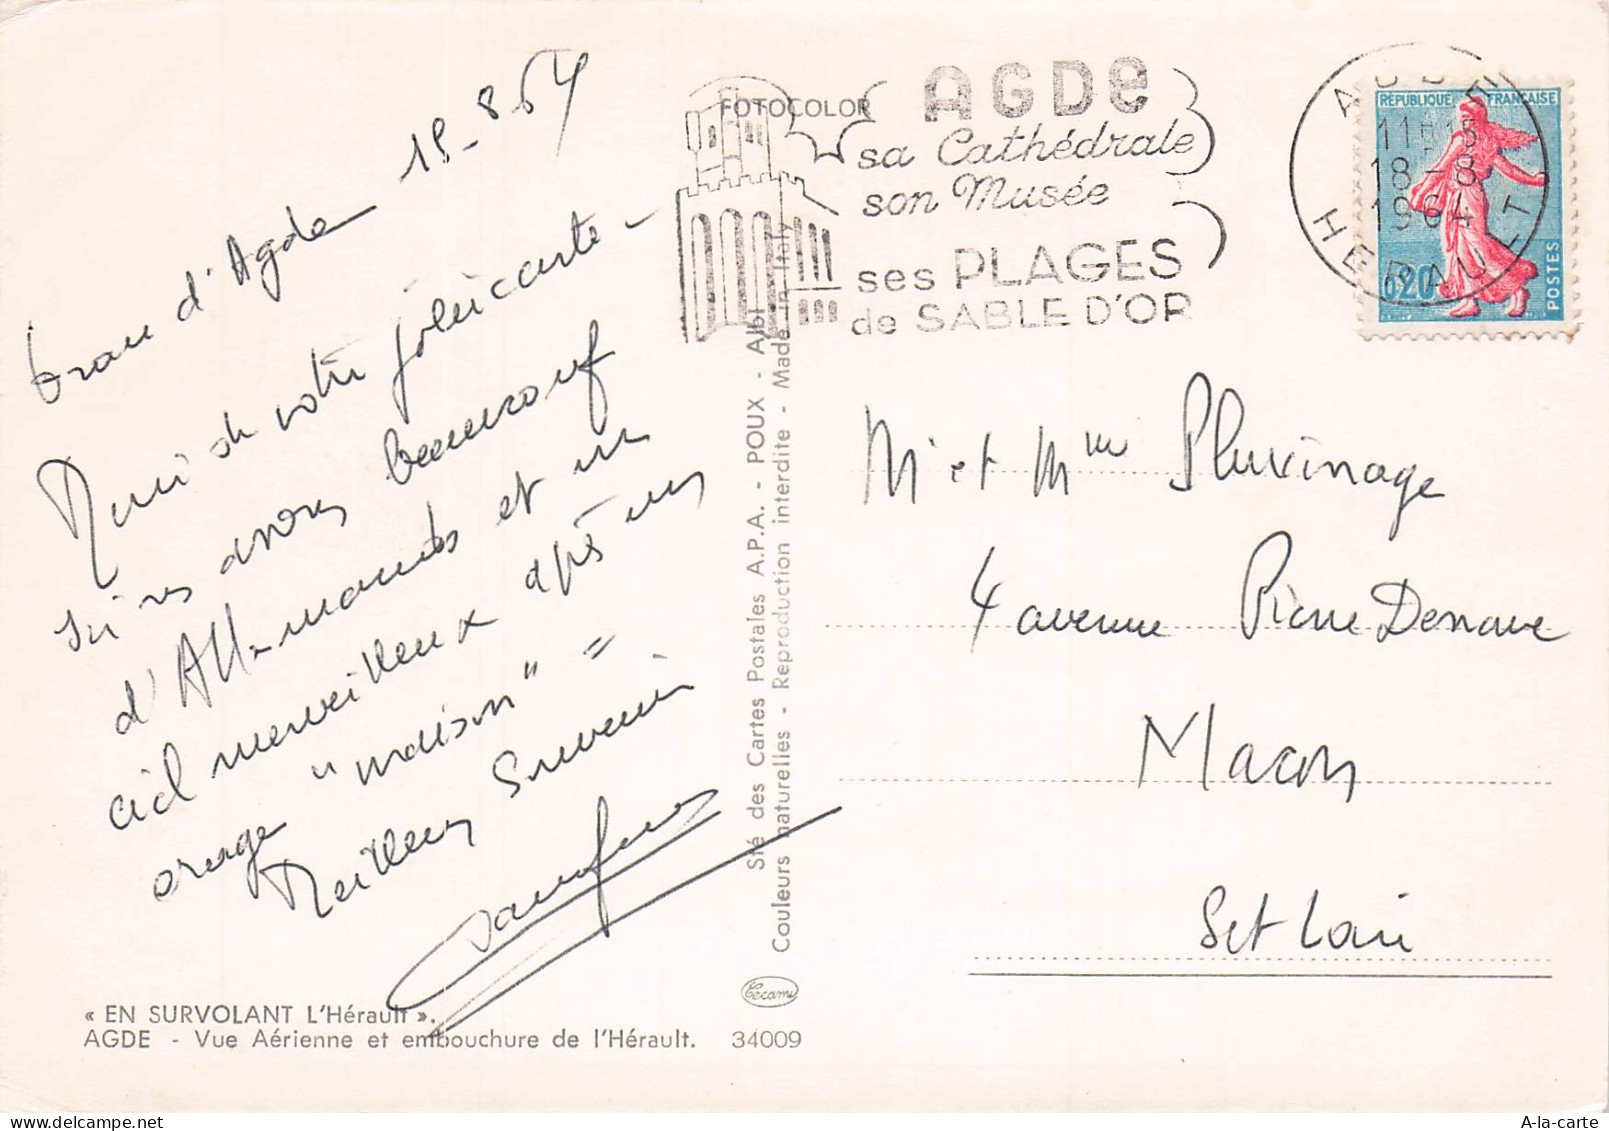 Grau d'Agde 18-8-64
Merci de votre jolie carte -
Ici ns avons beaucoup
d'Allemands et un
ciel merveilleux après un
orage "maison" =
Meilleurs Souvenirs
FOTOCOLOR
AGDE
sa Cathédrale
son Musée
ses PLAGES
de SABLE D'OR
AGDE
11H15
18-8
1964
HERAULT
REPUBLIQUE FRANÇAISE
0,20
POSTES
Sté des Cartes Postales A.P.A. - POUX - Albi
Couleurs naturelles - Reproduction interdite - Made in Italy
M et Mme Pluvinage
4 avenue Pierre Denave
Macon
S et Loire
Cecami
« EN SURVOLANT L'Hérault ».
AGDE - Vue Aérienne et embouchure de l'Hérault. 34009
A-la-carte